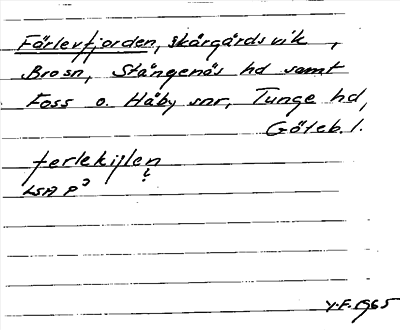 Färlevfjorden, skärgårdsvik,
Brosn, Stångenäs hd samt
Foss o. Håby snr, Tunge hd,
Göteb. l.
ferlekijlen
LSA P²
Y.F. 1965